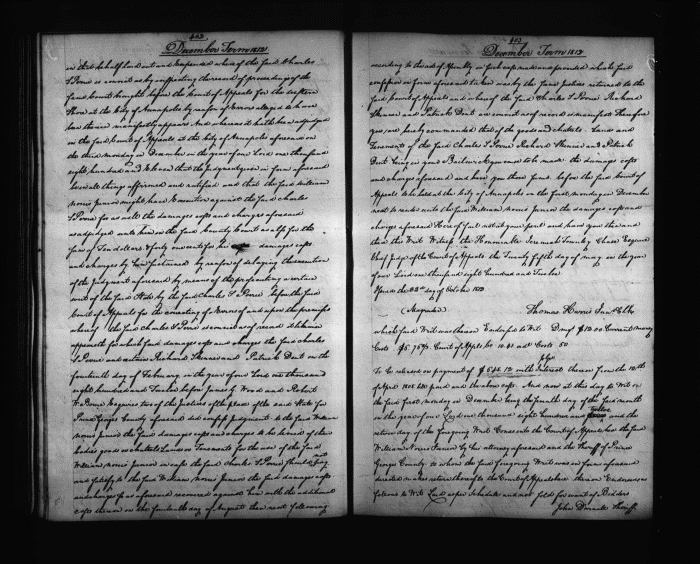 402
December Term 1812
in that behalf laid out and expended whereof the said Charles
S Poore is convict as by inspecting the record & proceedings of the
said Court brought before the Court of Appeals for the Western
Shore at the City of Annapolis by reason of errors alleged to have
been therein manifestly appears And whereas it hath been adjudged
in the said Court of Appeals at the City of Annapolis aforesaid on
the third monday in December in the year of our Lord one thousand
eight hundred and that the Judgment given in form aforesaid
be in all things affirmed and ratified and that the said William
Norris Junior might have Execution against the said Charles
S Poore for as well the damages costs and charges aforesaid
so adjudged unto him in the said County Court as also for the
sum of Ten dollars & forty one cents for his damages costs
and charges by him sustained by reason of delaying the execution
of the Judgment aforesaid by means of the prosecuting a certain
writ of the said State by the said Charles S Poore before the said
Court of Appeals for the correcting of errors and upon the premises
whereof the said Charles S Poore is convict as of record it likewise
appeareth for which said damages costs and charges the said Charles
S Poore and Richard and Patrick Dent on the
fourteenth day of February in the year of our Lord one thousand
eight hundred and Twelve before Wood and Robert
W Esquires two of the Justices of the peace of the said State for
Prince Georges County aforesaid did confess Judgment to the said William
Norris Junior the said damages costs and charges to be levied of their
bodies goods or chattels Lands or Tenements for the use of the said
William Norris Junior in case the said Charles S Poore should not pay
and satisfy to the said William Norris Junior the said damages costs
and charges so as aforesaid recovered against him with the additional
costs thereon on the fourteenth day of August then next following
403
December Term 1812
according to the act of Assembly in such case made and provided which said
confession in form aforesaid taken was by the same Justices returned to the
said Court of Appeals and whereof the said Charles S Poore Richard
and Patrick Dent are convict as of record is manifest Therefore
you are hereby commanded that of the goods and chattels Lands and
Tenements of the said Charles S Poore Richard and Patrick
Dent being in your Bailiwick you cause to be made the damages costs
and charges aforesaid and have you those sums before the said Court of
Appeals to be held at the City of Annapolis on the first monday in December
next to render unto the said William Norris Junior the damages costs and
charges aforesaid Hereof fail not at your peril and have you then and
there this Writ Witness the Honorable Jeremiah Townley Chase Esquire
Chief Judge of the Court of Appeals the Twenty fifth day of may in the year
of our Lord one thousand eight hundred and Twelve
Issued the 23d day of October 1812
Thomas Harris Junr Clk
which said Writ was thereon Endorsed to Wit Damgs $12.00 Current money
Costs $5. Court of Appls Co 10.41 adl Costs 50
To be released on payment of $542.12 with Interest thereon from the 12th
of April and the above costs. And now at this day to Wit on
the said first monday in December being the seventh day of the said month
in the year of our Lord one thousand eight hundred and twelve and the
return day of the foregoing Writ Comes into the Court of Appeals here the said
William Norris Junior by his attorney aforesaid and the Sheriff of Prince
George County to whom the said foregoing Writ was in form aforesaid
directed makes return thereof to the Court of Appeals here thereon Endorsed as
follows to Wit Laid as per Schedule and not sold for want of Bidders
John Sheriff